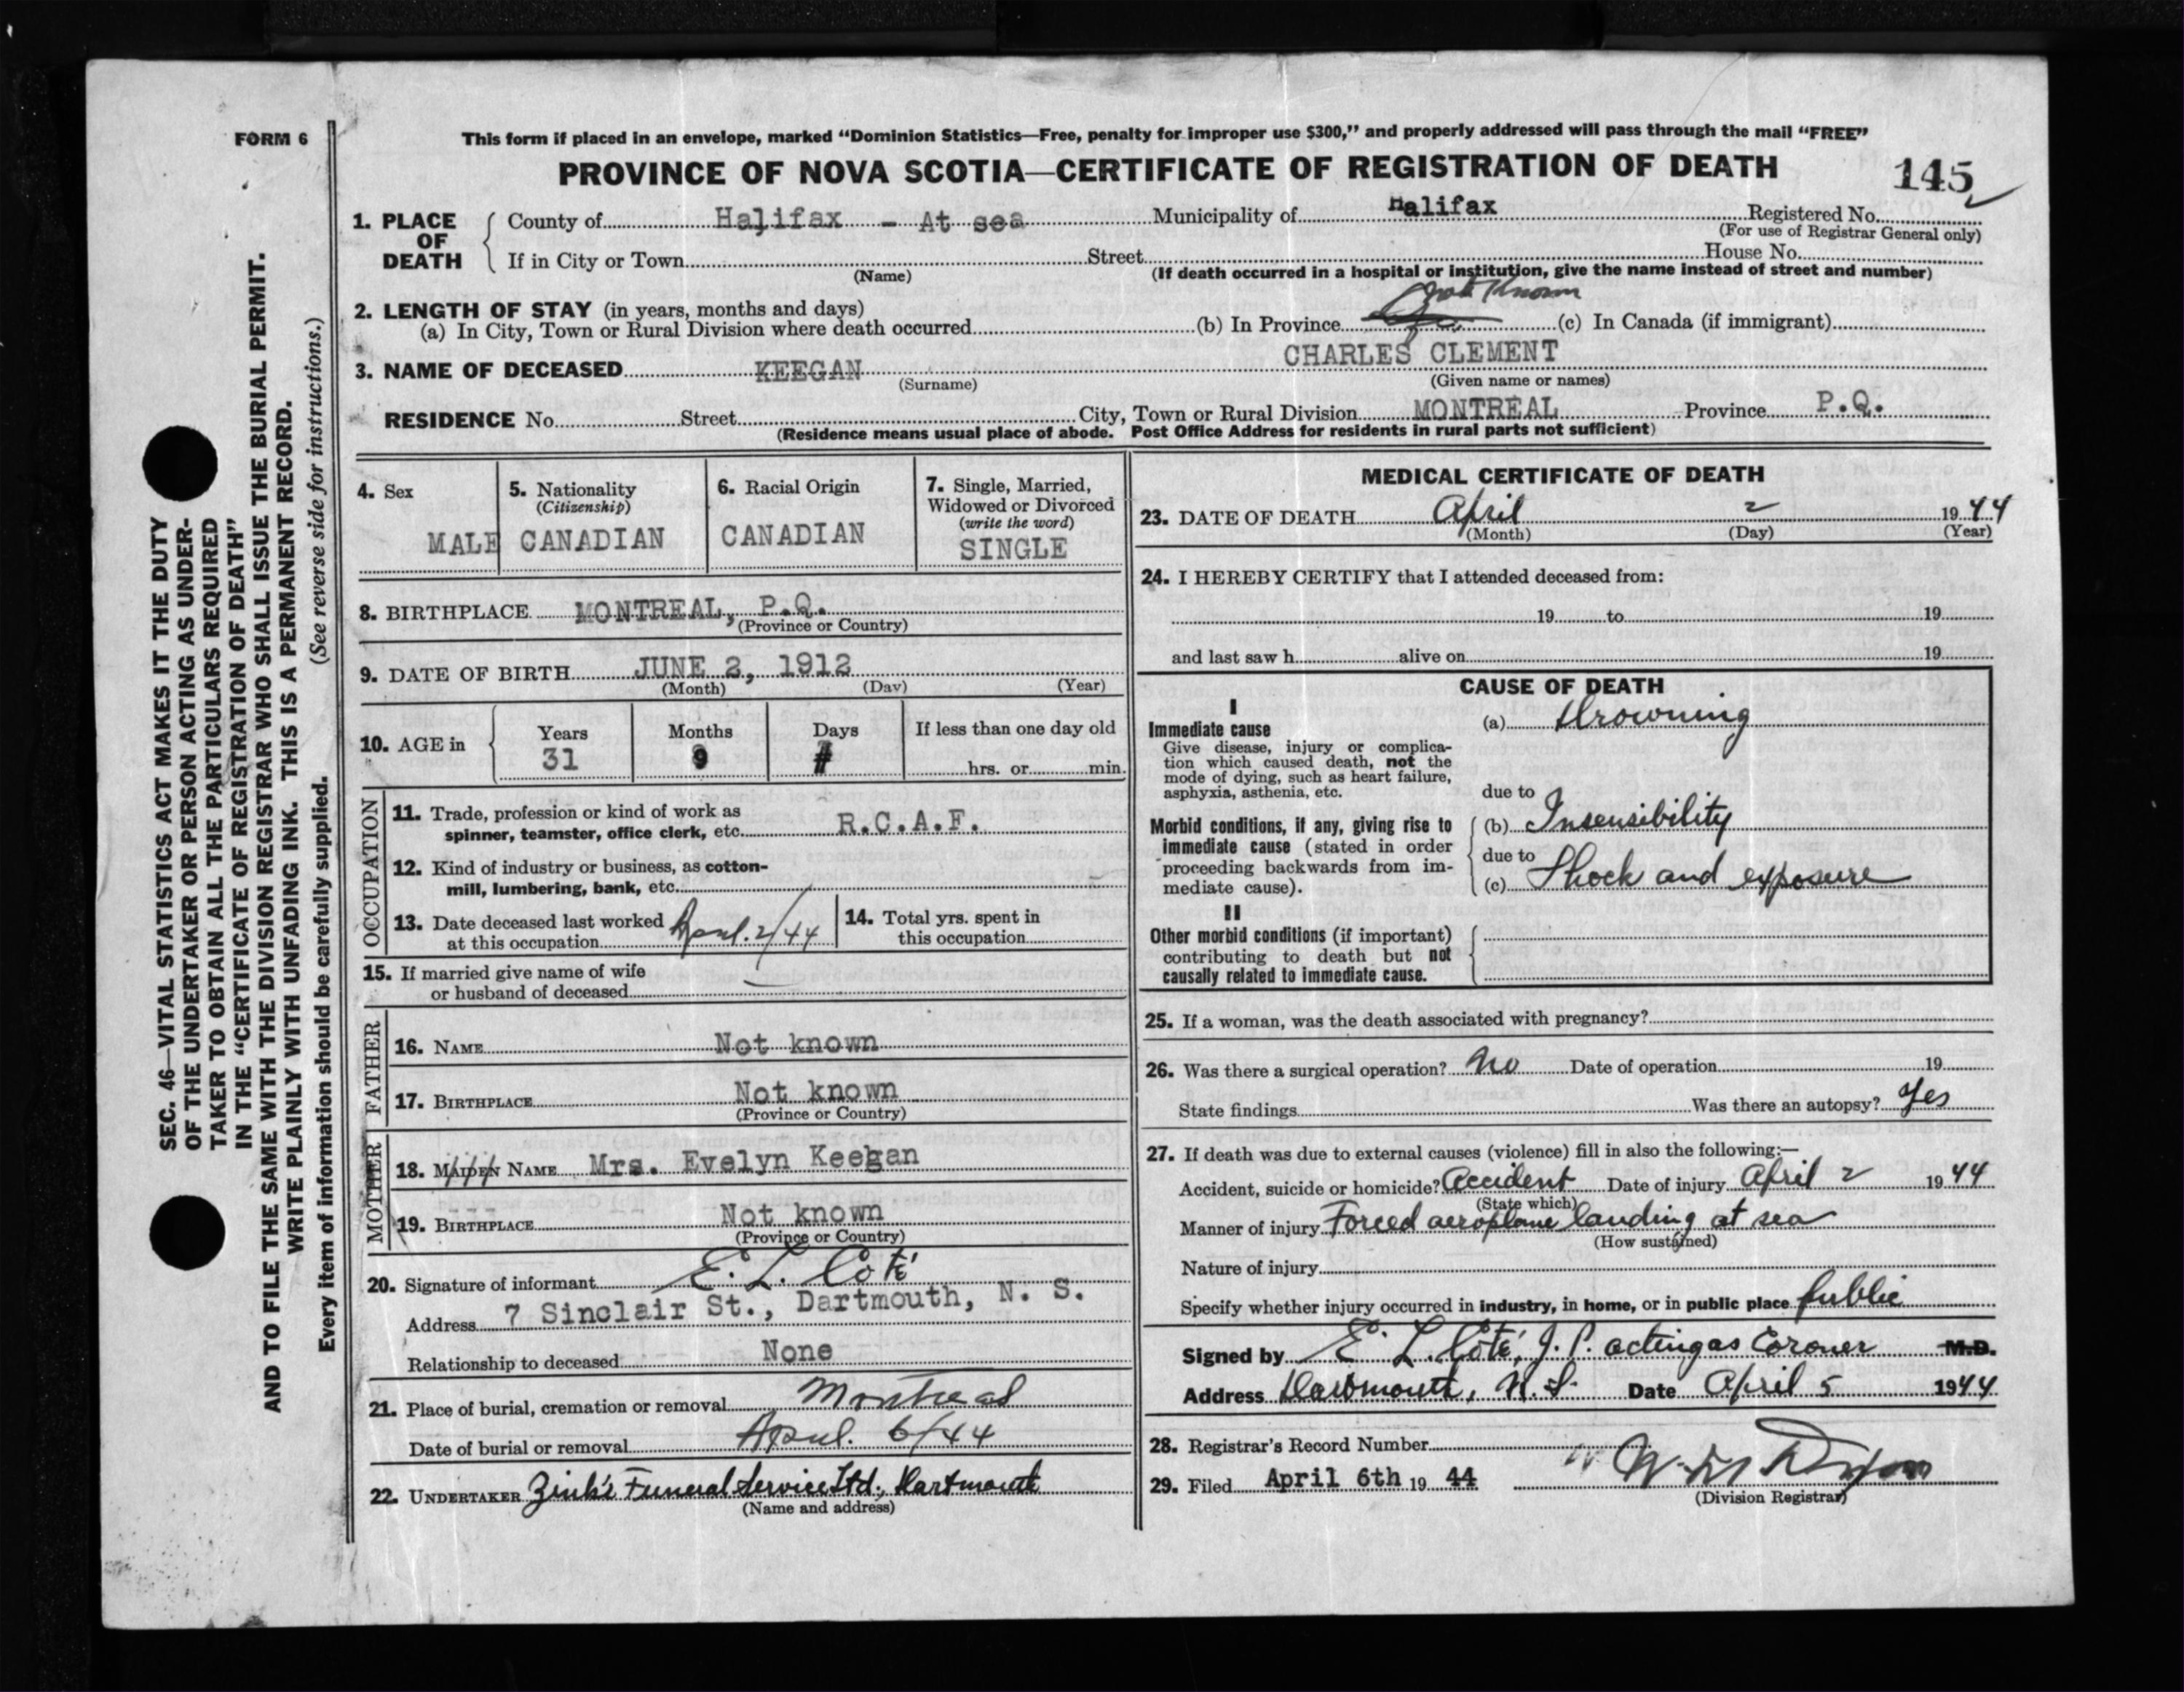 FORM 6
This form if placed in an envelope, marked "Dominion Statistics—Free, penalty for improper use $300," and properly addressed will pass through the mail "FREE"
PROVINCE OF NOVA SCOTIA—CERTIFICATE OF REGISTRATION OF DEATH
145
1. PLACE OF DEATH
County of Halifax - At sea Municipality of Halifax Registered No.
(For use of Registrar General only)
If in City or Town Street House No.
(Name) (If death occurred in a hospital or institution, give the name instead of street and number)
2. LENGTH OF STAY (in years, months and days)
Not Known
(a) In City, Town or Rural Division where death occurred (b) In Province (c) In Canada (if immigrant)
3. NAME OF DECEASED KEEGAN CHARLES CLEMENT
(Surname) (Given name or names)
RESIDENCE No. Street City, Town or Rural Division MONTREAL Province P.Q.
(Residence means usual place of abode. Post Office Address for residents in rural parts not sufficient)
4. Sex
MALE
5. Nationality
(Citizenship)
CANADIAN
6. Racial Origin
CANADIAN
7. Single, Married,
Widowed or Divorced
(write the word)
SINGLE
8. BIRTHPLACE MONTREAL, P.Q.
(Province or Country)
9. DATE OF BIRTH JUNE 2, 1912
(Month) (Day) (Year)
10. AGE in
Years Months Days If less than one day old
31 9
hrs. or min.
OCCUPATION
11. Trade, profession or kind of work as
spinner, teamster, office clerk, etc. R.C.A.F.
12. Kind of industry or business, as cotton-
mill, lumbering, bank, etc.
13. Date deceased last worked
at this occupation April. 2/44
14. Total yrs. spent in
this occupation
15. If married give name of wife
or husband of deceased
FATHER
16. NAME Not known
17. BIRTHPLACE Not known
(Province or Country)
MOTHER
18. MAIDEN NAME Mrs. Evelyn Keegan
19. BIRTHPLACE Not known
(Province or Country)
20. Signature of informant E. L. Coté
Address 7 Sinclair St., Dartmouth, N. S.
Relationship to deceased None
21. Place of burial, cremation or removal Montreal
Date of burial or removal April. 6/44
22. UNDERTAKER Zink's Funeral Service Ltd., Dartmouth
(Name and address)
MEDICAL CERTIFICATE OF DEATH
23. DATE OF DEATH April 2 1944
(Month) (Day) (Year)
24. I HEREBY CERTIFY that I attended deceased from:
19 to 19
and last saw h alive on 19
CAUSE OF DEATH
I
Immediate cause
Give disease, injury or complica-
tion which caused death, not the
mode of dying, such as heart failure,
asphyxia, asthenia, etc.
(a) Drowning
due to
Morbid conditions, if any, giving rise to
immediate cause (stated in order
proceeding backwards from im-
mediate cause).
(b) Insensibility
due to
(c) Shock and exposure
II
Other morbid conditions (if important)
contributing to death but not
causally related to immediate cause.
25. If a woman, was the death associated with pregnancy?
26. Was there a surgical operation? No Date of operation 19
State findings Was there an autopsy? Yes
27. If death was due to external causes (violence) fill in also the following:—
Accident, suicide or homicide? Accident Date of injury April 2 1944
(State which)
Manner of injury Forced aeroplane landing at sea
(How sustained)
Nature of injury
Specify whether injury occurred in industry, in home, or in public place public
Signed by E. L. Coté, J. P. acting as Coroner M.D.
Address Dartmouth, N. S. Date April 5 1944
28. Registrar's Record Number
29. Filed April 6th 19 44
(Division Registrar)
SEC. 46—VITAL STATISTICS ACT MAKES IT THE DUTY
OF THE UNDERTAKER OR PERSON ACTING AS UNDER-
TAKER TO OBTAIN ALL THE PARTICULARS REQUIRED
IN THE "CERTIFICATE OF REGISTRATION OF DEATH"
AND TO FILE THE SAME WITH THE DIVISION REGISTRAR WHO SHALL ISSUE THE BURIAL PERMIT.
WRITE PLAINLY WITH UNFADING INK. THIS IS A PERMANENT RECORD.
(See reverse side for instructions.)
Every item of information should be carefully supplied.